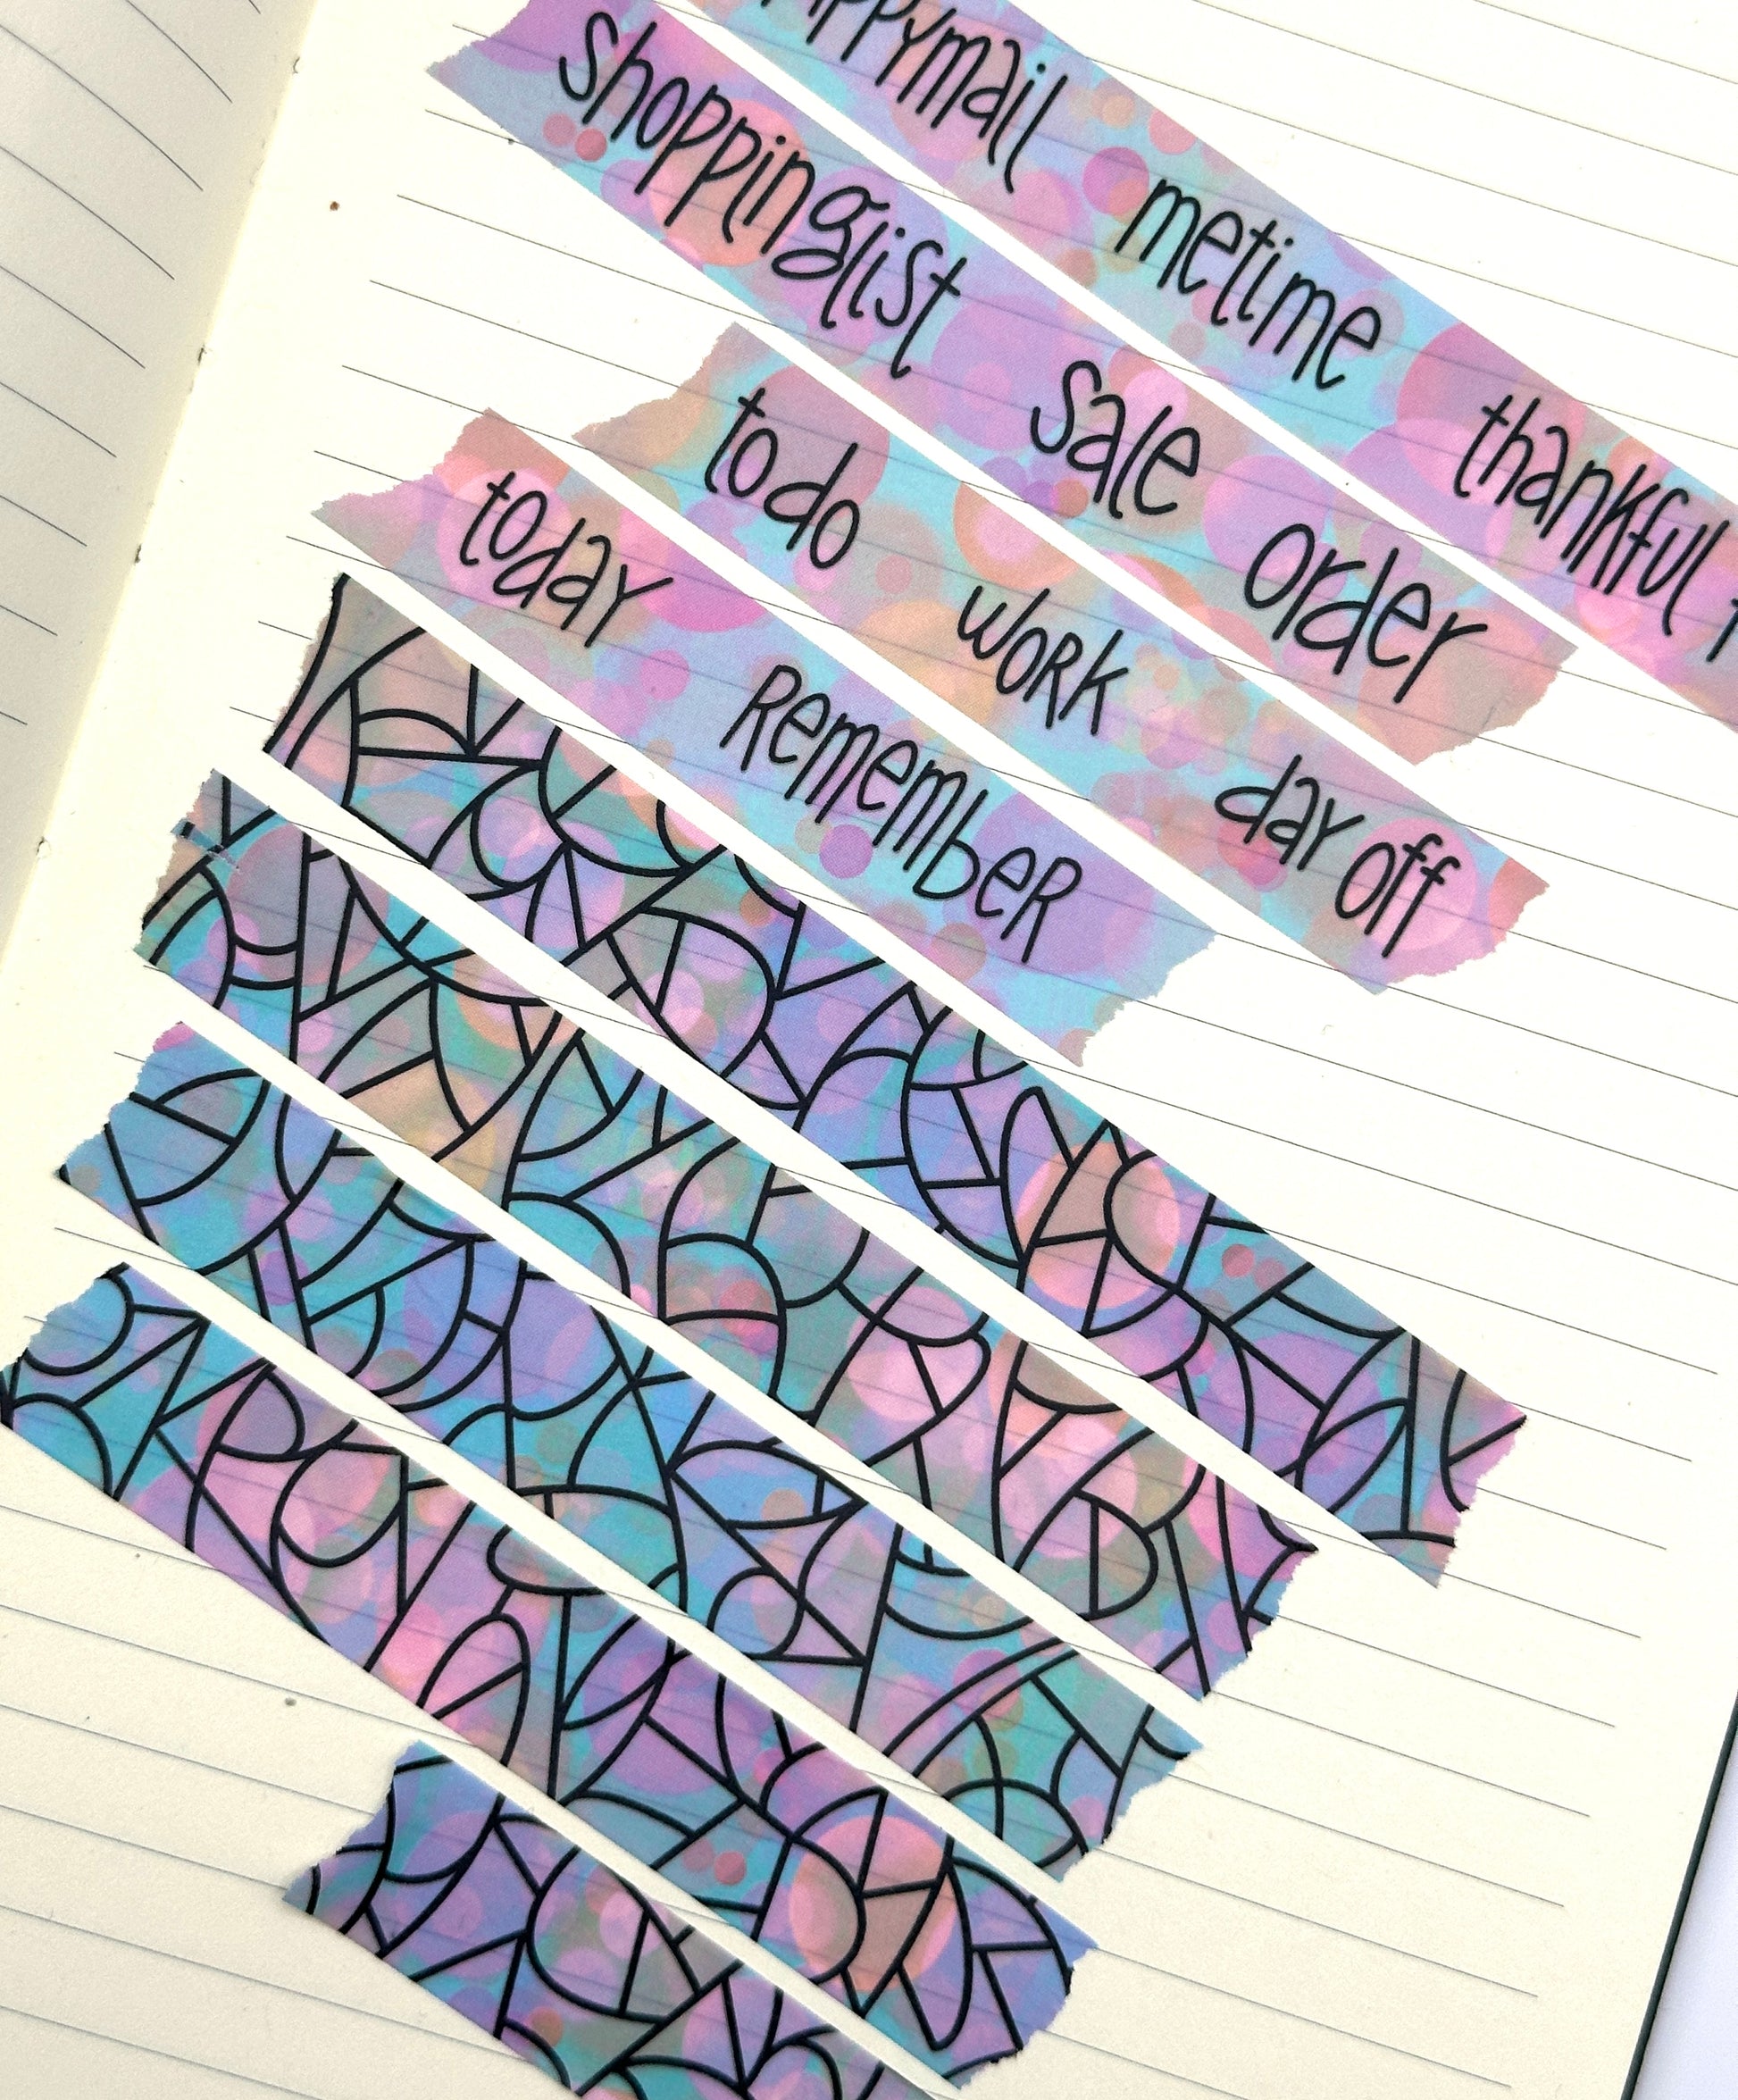 ppymail metime thankful
shoppinglist sale order
to do work day off
today Remember